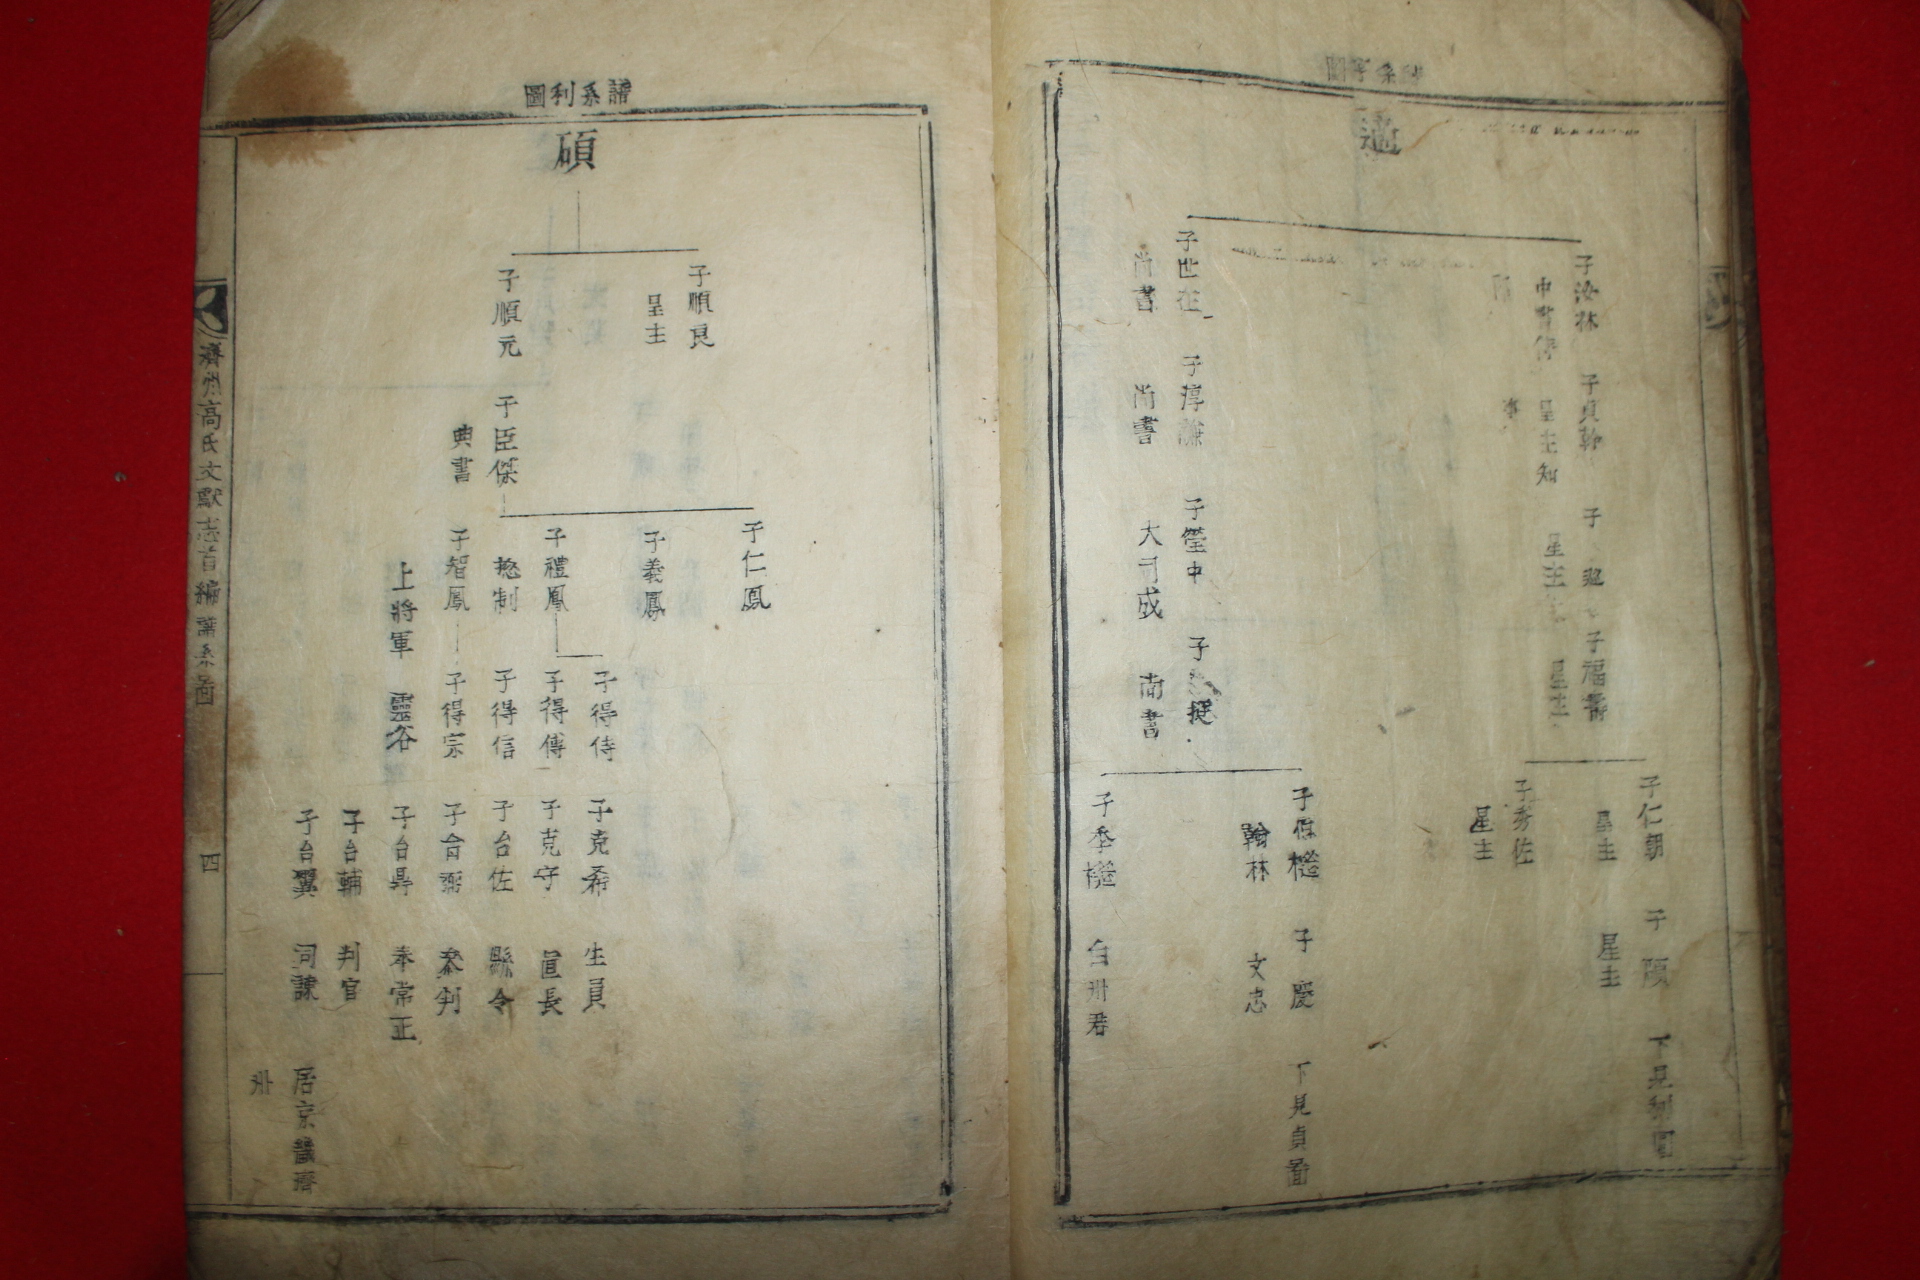 譜系亨圖
适
子汝林
中書侍
郎
子貞幹
星主知
事
子
星主
子福壽
星主
子仁朝
星主
子
星主
下見利圖
子秀佐
星主
子世在
尚書
子淳謙
尚書
子瑩中
大司成
子
挺
尚書
子
翰林
子慶
文忠
下見貞圖
子季檖
白州君
譜系利圖
碩
子順良
星主
子順元
子臣傑
典書
子仁鳳
子義鳳
子禮鳳
摠制
子智鳳
上將軍
靈谷
子得侍
子得傅
子得信
子得宗
子克希
生員
子克守
直長
子台佐
縣令
子台弼
參判
子台鼎
奉常正
子台輔
判官
子台翼
司諫
居京畿濟
州
濟州高氏文獻志首編譜系圖
四